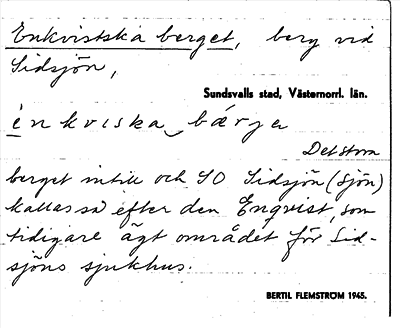 Enkvistska berget, berg vid
Sidsjön,
Sundsvalls stad, Västernorrl. län.
enkviska bærje
Det stora
berget intill och SO Sidsjön (sjön)
kallas så efter den Enqvist, som
tidigare ägt området för Sid-
sjöns sjukhus.
BERTIL FLEMSTRÖM 1945.